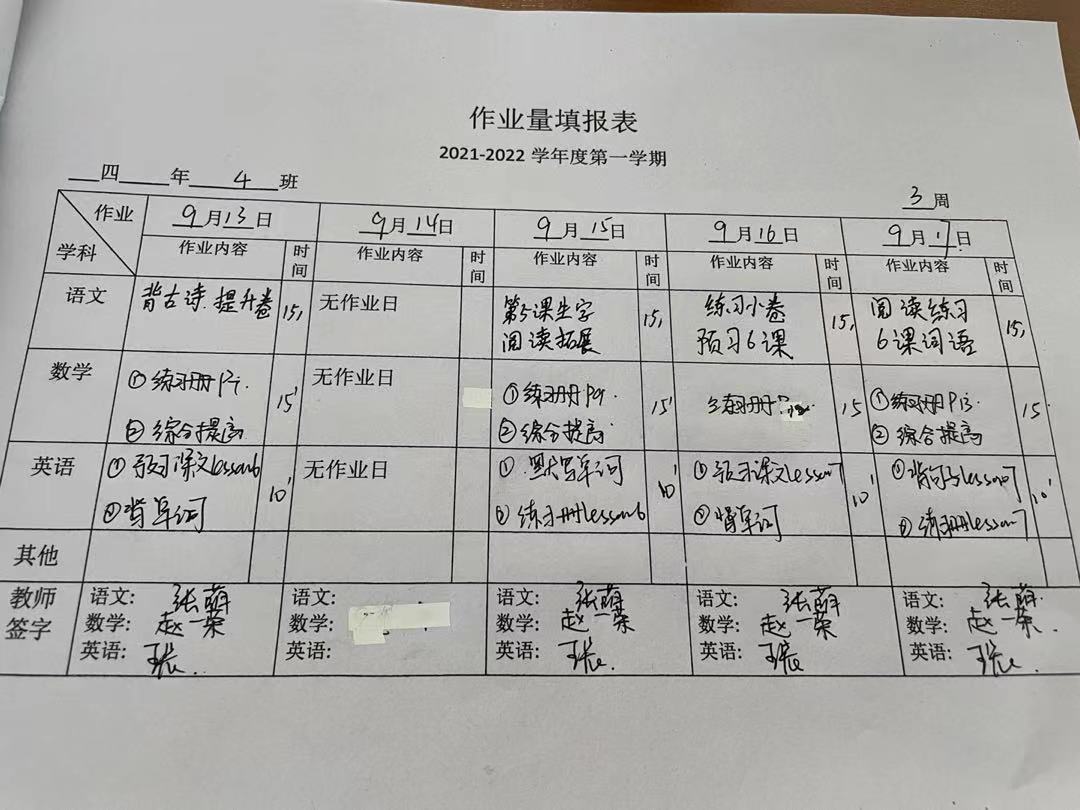 作业量填报表
2021-2022 学年度第一学期
四 年 4 班
3 周
作业
学科
9月13日 9月14日 9月15日 9月16日 9月17日
作业内容 时间 作业内容 时间 作业内容 时间 作业内容 时间 作业内容 时间
语文 背古诗.提升卷 15, 无作业日 第5课生字 15, 练习小卷 15, 阅读练习 15,
阅读拓展 预习6课 6课词语
数学 ①练习册P7. 15' 无作业日 ①练习册P9. 15' 练习册 15 ①练习册P13. 15
②综合提高 ②综合提高 ②综合提高
英语 ①预习课文lesson6 10' 无作业日 ①默写单词 10' ①预习课文lesson7 10' ①背句子lesson7 10'
②背单词 ②练习册lesson6 ②背单词 ②练习册lesson7
其他
教师 语文: 张萌 语文: 语文: 张萌 语文: 张萌 语文: 张萌
签字 数学: 赵一荣 数学: 数学: 赵一荣 数学: 赵一荣 数学: 赵一荣.
英语: 英语: 英语: 英语: 英语: